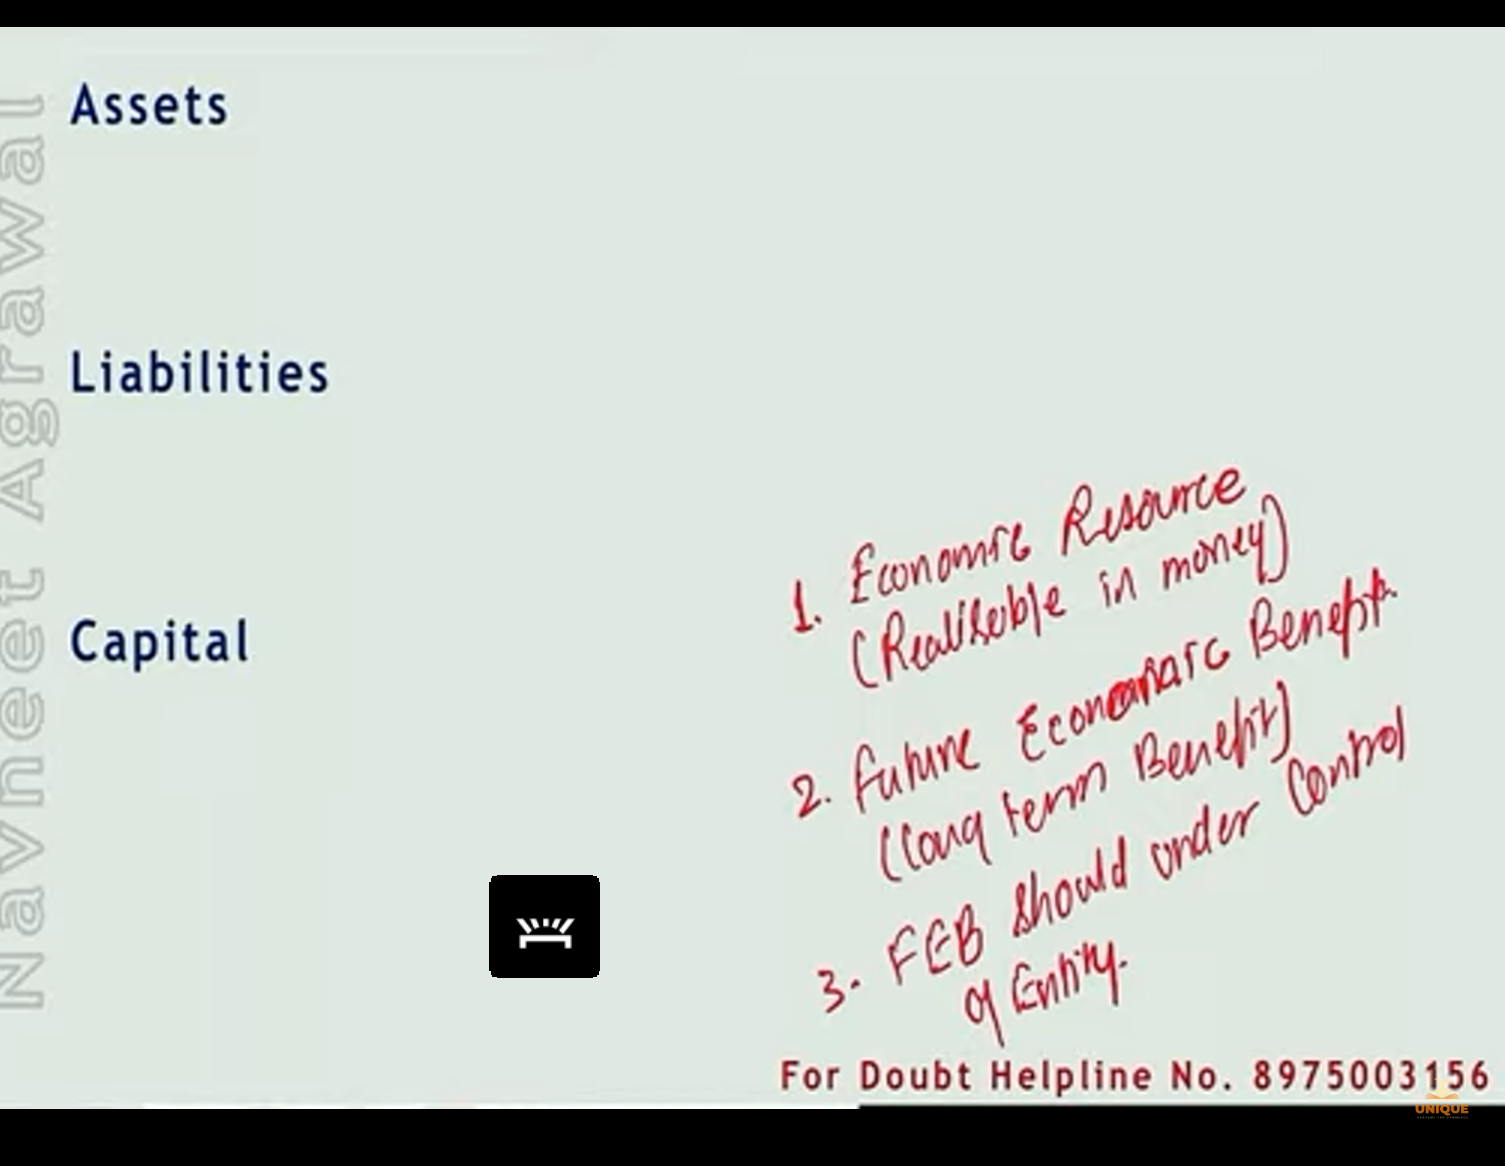 Navneet Agrawal
Assets
Liabilities
Capital
1. Economic Resource
(Realisable in money)
2. Future Economic Benefit.
(Long term Benefit)
3. FEB should under Control
of Entity.
For Doubt Helpline No. 8975003156
UNIQUE